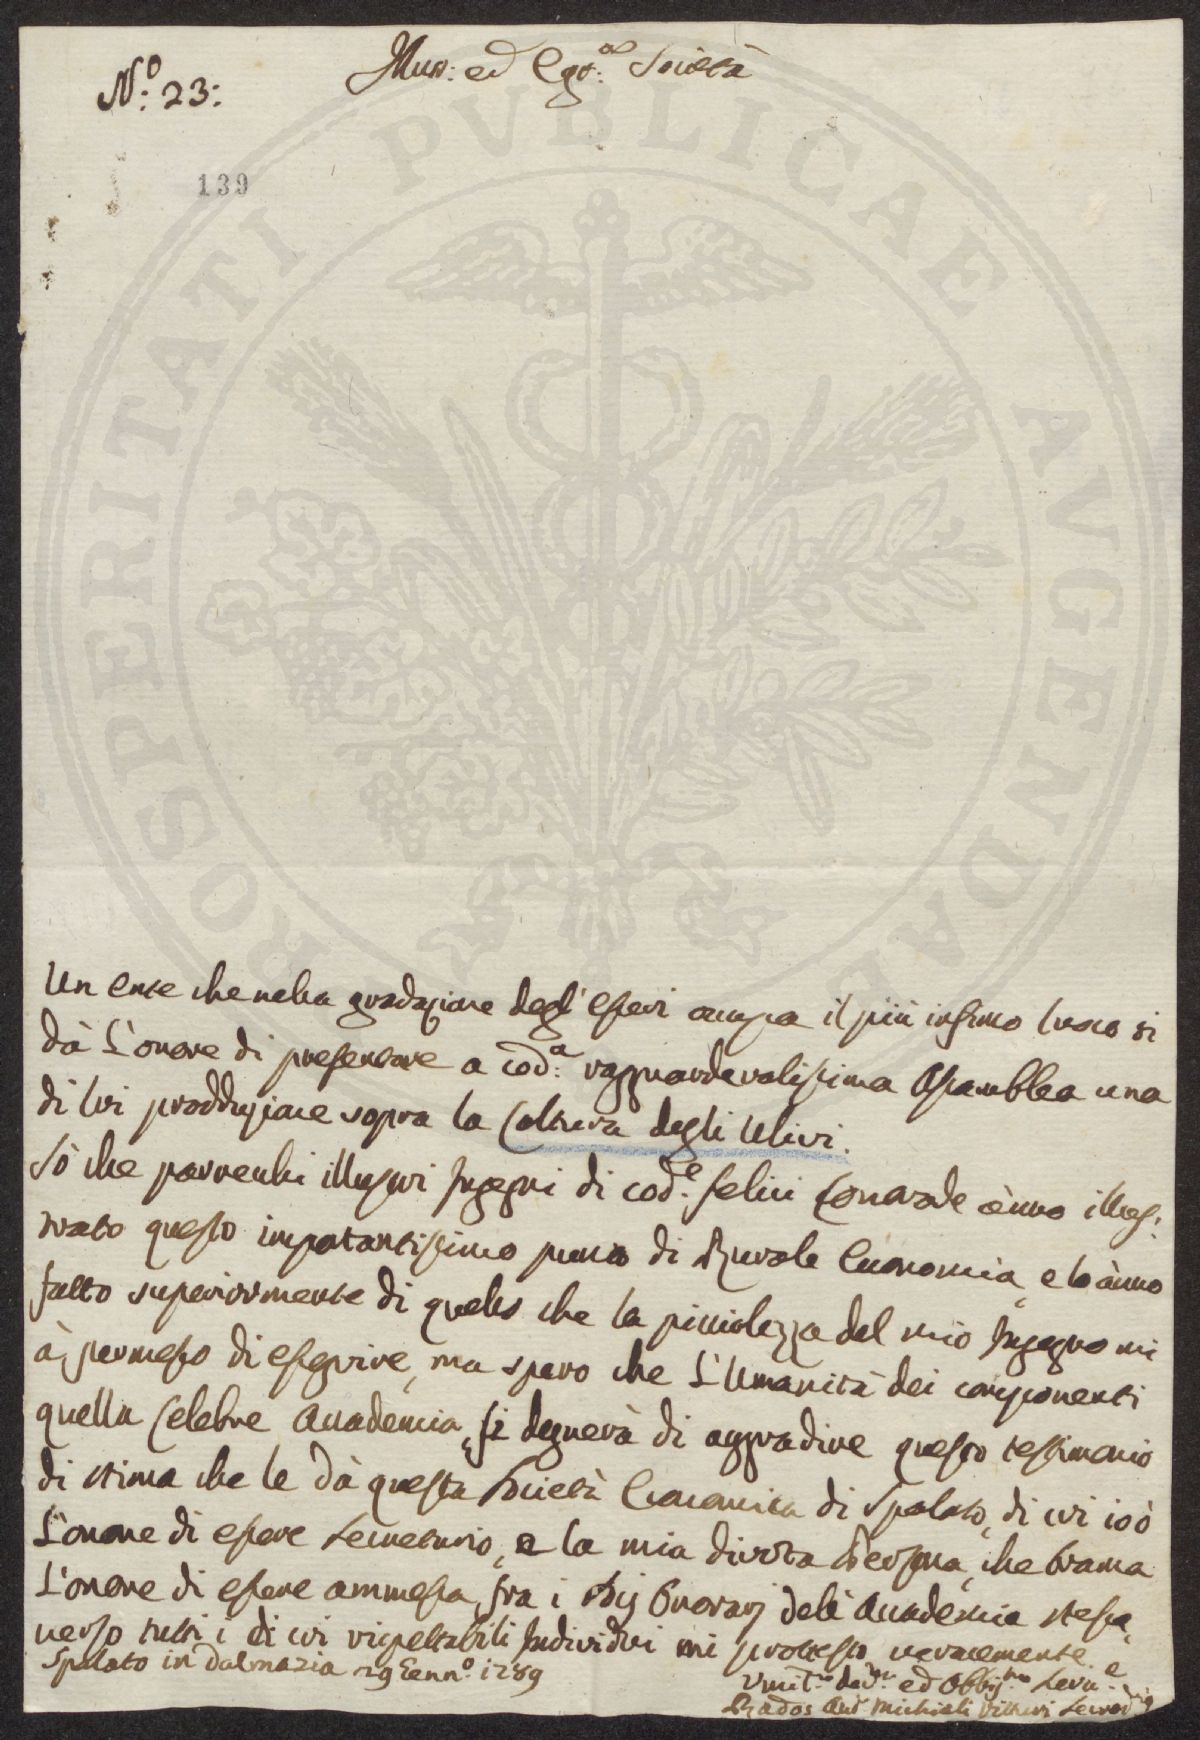 N.o 23:
Illus: ed Egr:a Società
139
PROSPERITATI PVBLICAE AVGENDAE
Un Ente che nella gradazione degl'Esseri occupa il più infimo luoco si
dà l'onore di presentare a cod:a ragguardevolissima Assamblea una
di lui produzione sopra la Coltura degli Ulivi.
Sò che parrecchi illustri Ingegni di cod:e felici Contrade ànno illus:
trato questo importantissimo punto di Rurale Economia, e lo ànno
fatto superiormente di quello che la picciolezza del mio Ingegno mi
à permesso di eseguire, ma spero che l'Umanità dei componenti
quella Celebre Accademia, si degnerà di aggradire questo testimonio
di stima che le dà questa Società Economica di Spalato, di cui io ò
l'onore di essere Secretario, e la mia divota Persona, che brama
l'onore di essere ammessa fra i Sig Onorarj dell'Accademia stessa,
verso tutti i di cui rispettabili Individui mi protesto veracemente
Spalato in Dalmazia 29 Genn.o 1789
Umil.mo dev.mo ed Obblig.mo Serv.e
Rados Ant Michieli Vitturi Secret.rio